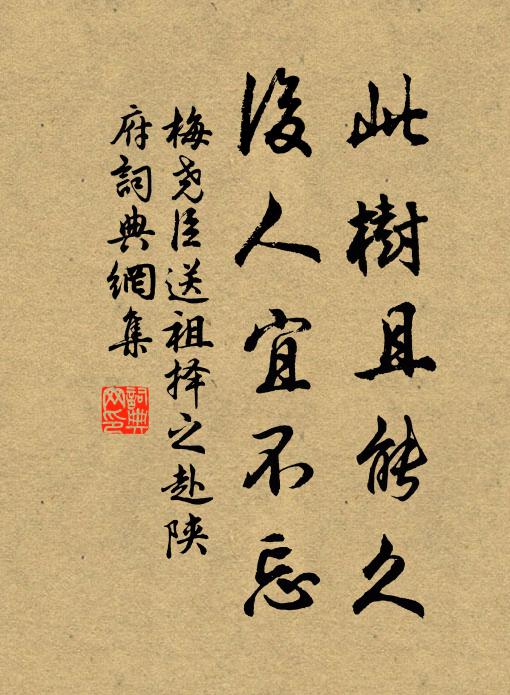 此樹且能久
後人宜不忘
梅堯臣送祖择之赴陝
府詞典網集
詞典
网印